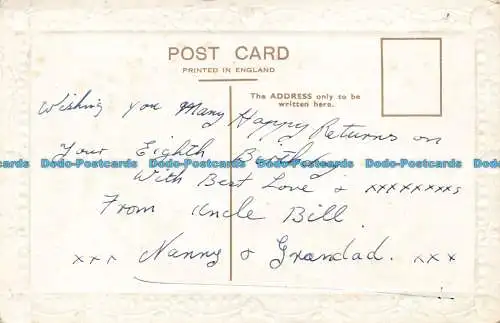 POST CARD
PRINTED IN ENGLAND
The ADDRESS only to be
written here.
Wishing you Many Happy Returns on
Your Eighth Birthday
Dodo-Postcards Dodo-Postcards Dodo-Postcards Dodo-Postcards Dodo-Postcards
With Best Love & xxxxxxxxs
From Uncle Bill
xxx Nanny & Grandad. xxx